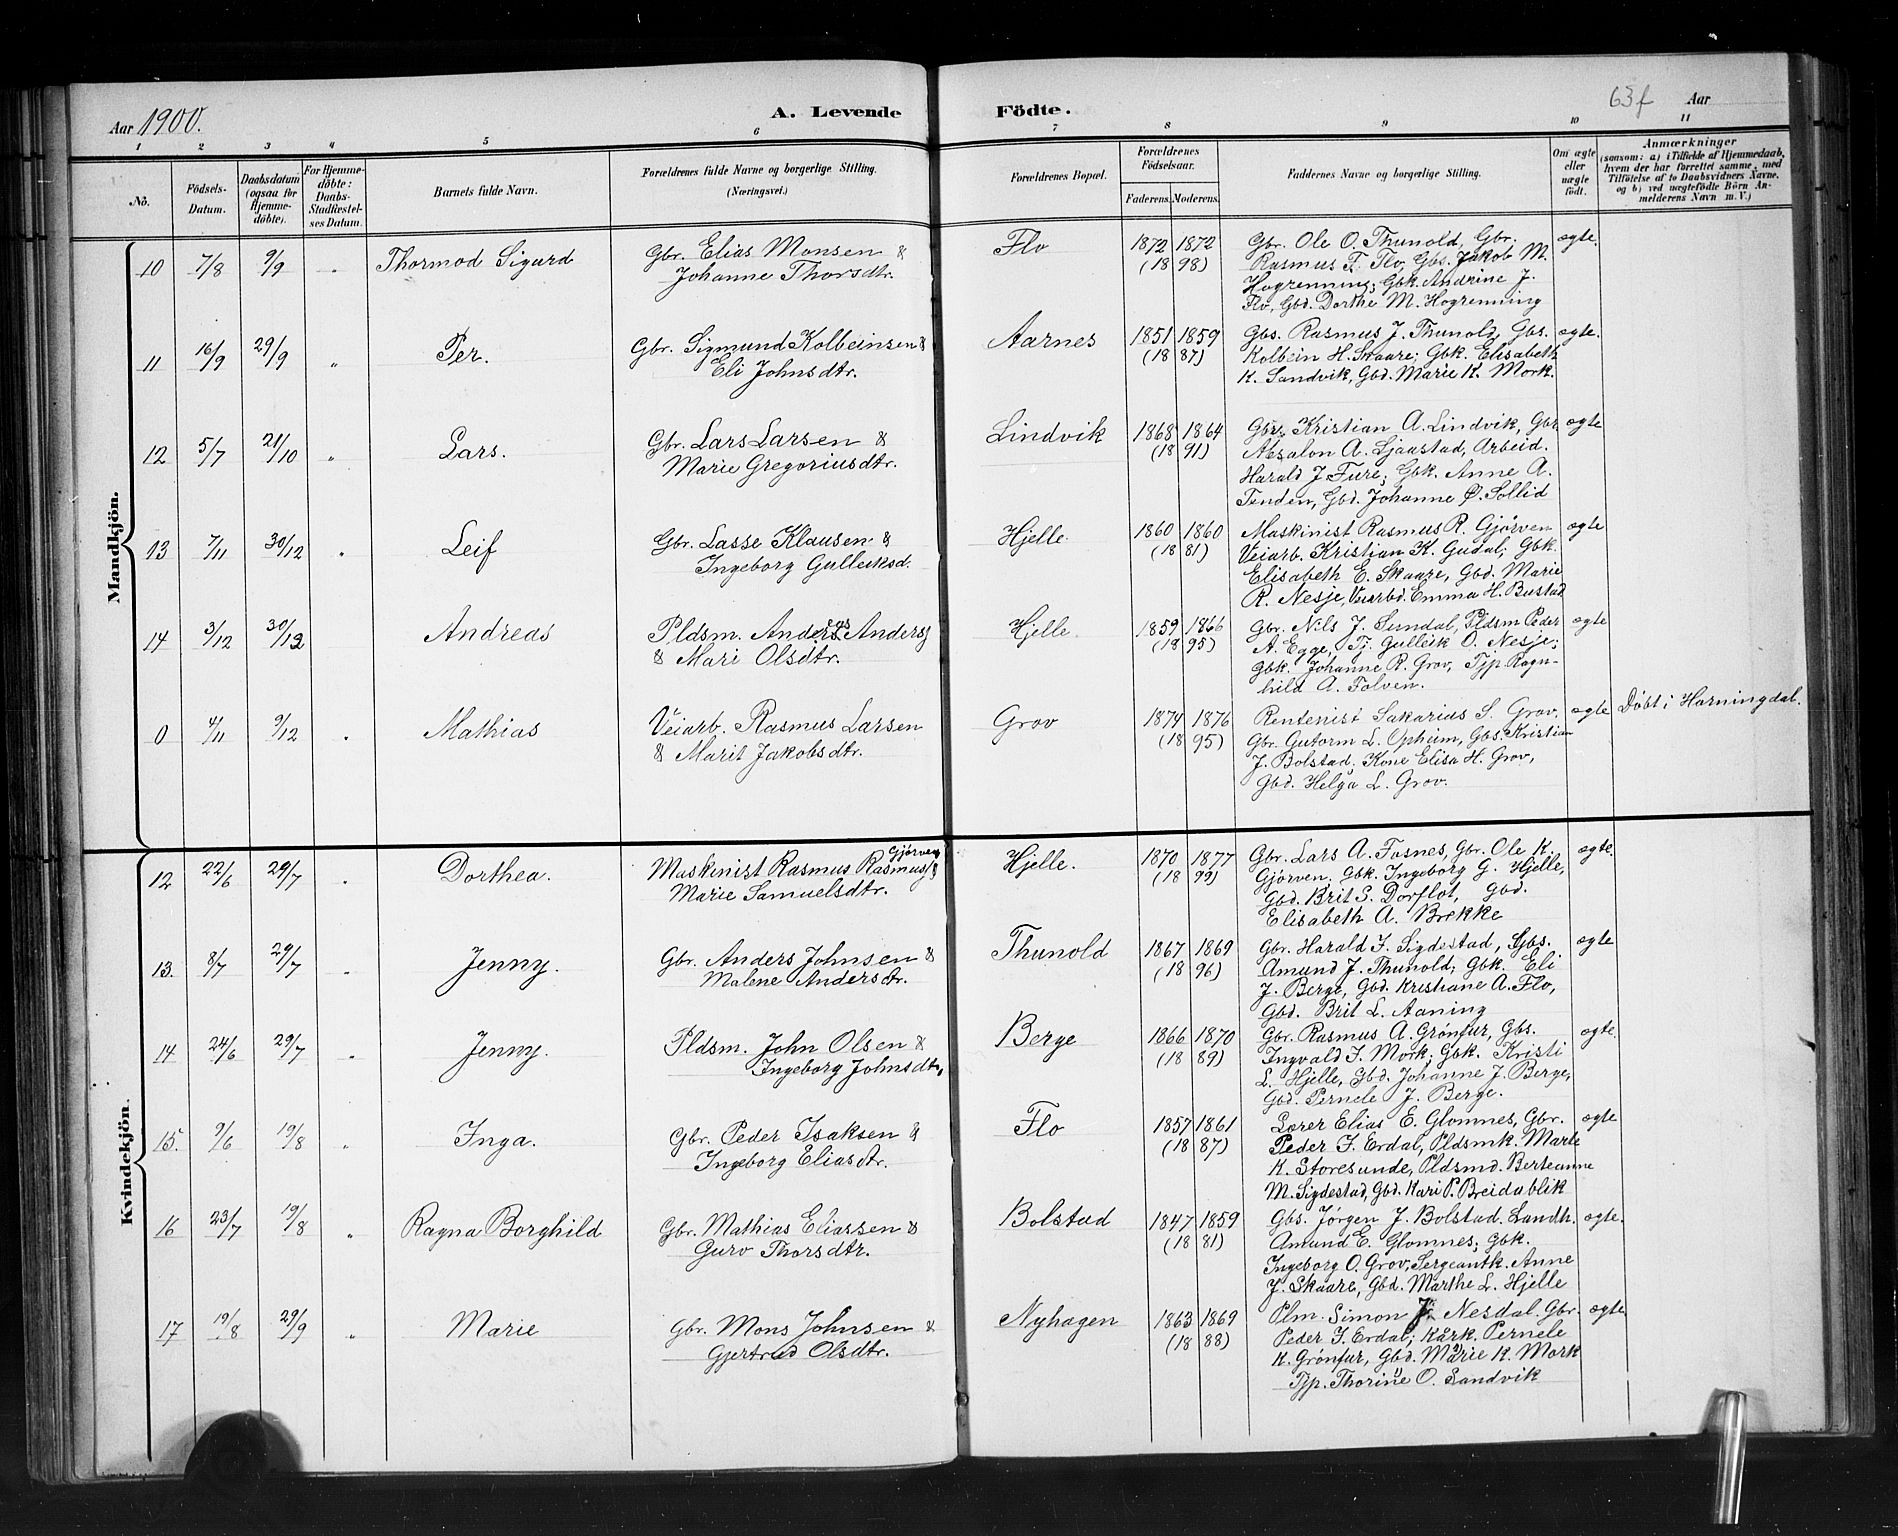 Aar 1900.
A. Levende Födte.
63f Aar
1 2 3 4 5 6 7 8 9 10 11
No.
Födsels-Datum.
Daabsdatum (ogsaa for Hjemme-döbte).
For Hjemme-döbte: Daabs-Stadfæstel-ses Datum.
Barnets fulde Navn.
Forældrenes fulde Navne og borgerlige Stilling. (Næringsvei.)
Forældrenes Bopæl.
Forældrenes Födselsaar.
Faderens. Moderens.
Faddernes Navne og borgerlige Stilling.
Om ægte eller uægte födt.
Anmærkninger
(saasom: a) i Tilfælde af Hjemmedaab,
hvem der har forrettet samme, med
Tilföielse af to Daabsvidners Navne,
og b) ved uægtefödte Börn An-
melderens Navn m. V.)
Mandkjön.
10 7/8 9/9 " Thormod Sigurd Gbr. Elias Monsen & Flo 1872 1872 Gbr. Ole O. Thunold, Gbr. ægte.
Johanne Thorsdtr. (18 98) Rasmus T. Flo, Gbs. Jakob M.
Hogrenning; Gbk. Andrine J.
Flo, Gbd. Dorthe M. Hogrenning
11 16/9 29/9 " Per. Gbr. Sigmund Kolbeinsen & Aarnes 1851 1859 Gbs. Rasmus J. Thunold, Gbs. ægte.
Eli Johnsdtr. (18 87) Kolbein H. Skaare; Gbk. Elisabeth
K. Sandvik, Gbd. Marie K. Mork.
12 5/7 21/10 " Lars. Gbr. Lars Larsen & Lindvik 1868 1864 Gbrs. Kristian A. Lindvik, Gbr. ægte
Marie Gregoriusdtr. (18 91) Absalon A. Ljaastad, Arbeid.
Harald J. Fure; Gbk. Anne A.
Tenden, Gbd. Johanne Ø. Sollid
13 7/11 30/12 " Leif Gbr. Lasse Klausen & Hjelle. 1860 1860 Maskinist Rasmus R. Gjørven ægte
Ingeborg Gulleiksd. (18 81) Veiarb. Kristian K. Gudal; Gbk.
Elisabeth E. Skaare, Gbd. Marie
R. Nesje, Veiarbd. Emma H. Bustad
14 3/12 30/12 Andreas Pldsm. Anders Anders Hjelle. 1859 1866 Gbr. Nils J. Sundal, Pldsm Peder ægte
& Mari Olsdtr. (18 95) A. Egge, Tj. Gulleik O. Nesje;
Gbk. Johanne R. Grov, Tjp. Ragn-
hild A. Folven.
0 4/11 9/12 " Mathias Veiarb. Rasmus Larsen Grov 1874 1876 Rentenist Sakarius S. Grov, ægte Døbt i Horningdal.
& Marit Jakobsdtr. (18 95) Gbr. Gutorm L. Opheim, Gbs. Kristian
J. Bolstad. Kone Elisa H. Grov,
Gbd. Helga L. Grov.
Kvindekjön.
12 22/6 29/7 " Dorthea. Maskinist Rasmus Rasmus Gjørven & Hjelle. 1870 1877 Gbr. Lars A. Fosnes, Gbr. Ole K. ægte.
Marie Samuelsdtr. (18 99) Gjørven. Gbk. Ingeborg G. Hjelle,
Gbd. Brit S. Dorflot, Gbd.
Elisabeth A. Brekke
13. 8/7 29/7 " Jenny. Gbr. Anders Johnsen & Thunold 1867 1869 Gbr. Harald J. Sigdestad, Gbs. ægte
Malene Andersdtr. (18 96) Amund J. Thunold; Gbk. Eli
J. Berge, Gbd. Kristiane A. Flo,
Gbd. Brit L. Aaning
14. 24/6 29/7 " Jenny. Pldsm. John Olsen & Berge 1866 1870 Gbr. Rasmus A. Grönfur, Gbs. ægte.
Ingeborg Johnsdtr, (18 89) Ingvald J. Mork; Gbk. Kristi
L. Hjelle, Gbd. Johanne J. Berge,
Gbd. Pernele J. Berge.
15. 9/6 19/8 " Inga. Gbr. Peder Isaksen & Flo 1857 1861 Lærer Elias E. Glomnes, Gbr. ægte
Ingeborg Eliasdtr. (18 87) Peder J. Erdal, Pldsmk. Marte
K. Storesunde, Pldsmd. Berteanne
M. Sigdestad, Gbd. Kari P. Breidablik
16 23/7 19/8 " Ragna Borghild Gbr. Mathias Eliassen & Bolstad 1847 1859 Gbs. Jørgen J. Bolstad. Landh. ægte.
Guro Thorsdtr. (18 81) Amund E. Glomnes; Gbk.
Ingeborg O. Grov, Sergeantk. Anne
J. Skaare, Gbd. Marthe L. Hjelle
17 19/8 29/9 " Marie Gbr. Mons Johnsen & Nyhagen 1863 1869 Plm. Simon J. Nesdal. Gbr. ægte
Gjertrud Olsdtr. (18 88) Peder J. Erdal; Kark. Pernele
K. Grönfur, Gbd. Marie K. Mork
Tjp. Thorine O. Sandvik